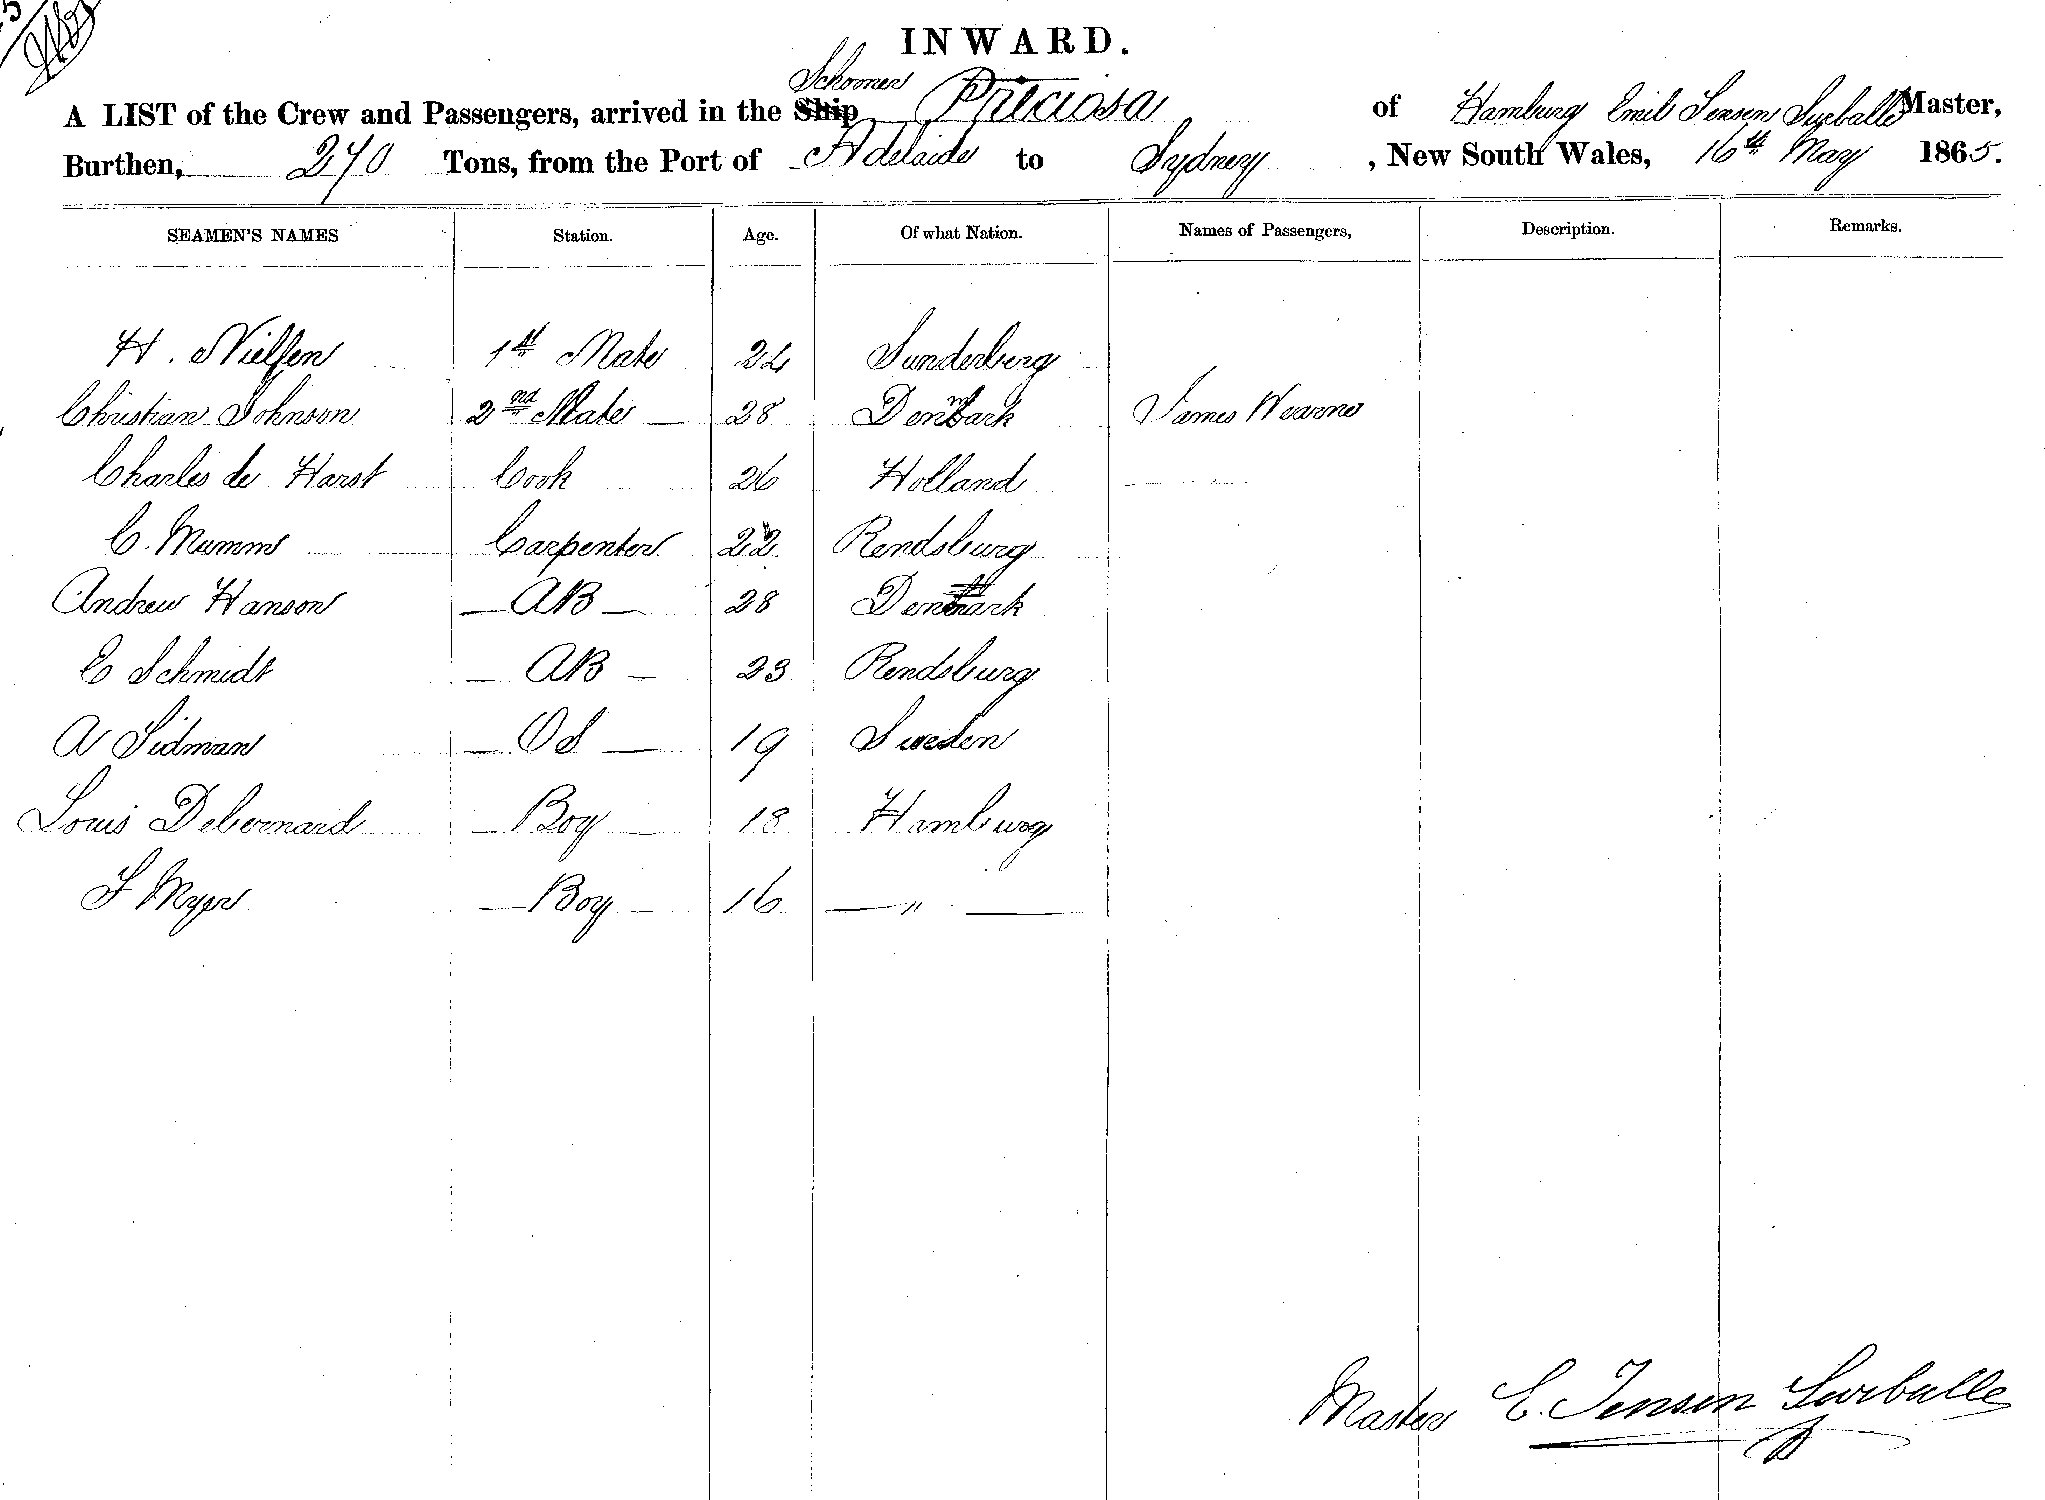 INWARD.
Schooner
A LIST of the Crew and Passengers, arrived in the Ship Preciosa of Hamburg Emil Jensen Master,
Burthen, 270 Tons, from the Port of Adelaide to Sydney, New South Wales, 16th May 1865.
SEAMEN'S NAMES Station. Age. Of what Nation. Names of Passengers, Description. Remarks.
H. Nielsen 1st Mate 24 Sunderberg
Christian Johnson 2nd Mate 28 Denmark James Wearne
Charles de Harst Cook 26 Holland
C. Mumm Carpenter 22 Rendsburg
Andrew Hanson AB 28 Denmark
E Schmidt AB 23 Rendsburg
A Sidman OS 19 Sweden
Louis Debernard Boy 18 Hamburg
F Myer Boy 16 "
Master E. Jensen